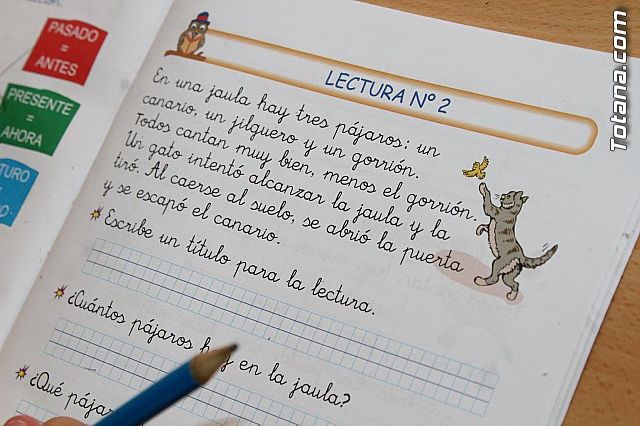 PASADO
=
ANTES
PRESENTE
=
AHORA
=
LECTURA Nº 2
En una jaula hay tres pájaros: un
canario, un jilguero y un gorrión.
Todos cantan muy bien, menos el gorrión.
Un gato intentó alcanzar la jaula y la
tiró. Al caerse al suelo, se abrió la puerta
y se escapó el canario.
Escribe un título para la lectura.
¿Cuántos pájaros hay en la jaula?
¿Qué
Totana.com